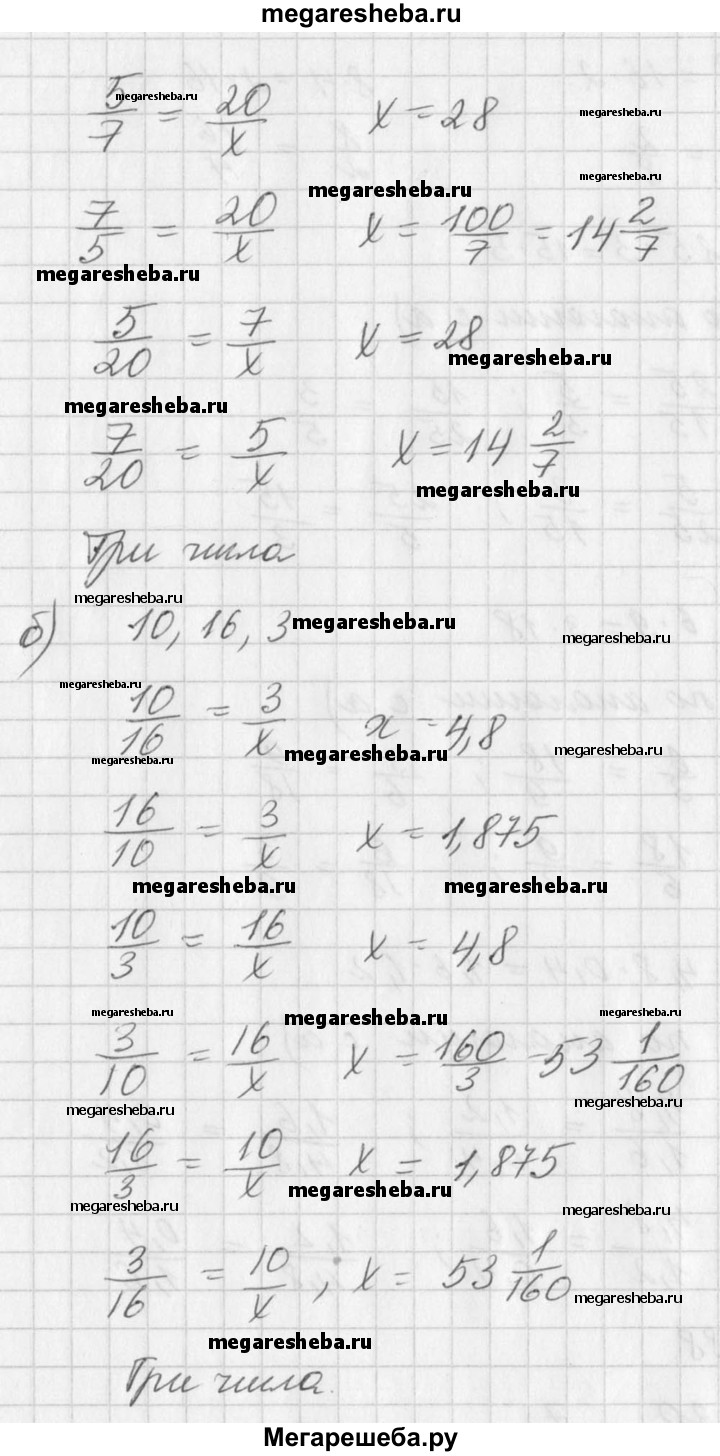 megaresheba.ru
5/7 = 20/x x = 28
megaresheba.ru
megaresheba.ru
megaresheba.ru
megaresheba.ru
7/5 = 20/x x = 100/7 = 14 2/7
megaresheba.ru
megaresheba.ru
5/20 = 7/x x = 28
megaresheba.ru
megaresheba.ru
7/20 = 5/x x = 14 2/7
megaresheba.ru
Три числа
megaresheba.ru
megaresheba.ru
б) 10, 16, 3
megaresheba.ru
megaresheba.ru
megaresheba.ru
10/16 = 3/x x = 4,8
megaresheba.ru
megaresheba.ru
megaresheba.ru
16/10 = 3/x x = 1,875
megaresheba.ru
megaresheba.ru
10/3 = 16/x x = 4,8
megaresheba.ru
megaresheba.ru
megaresheba.ru
3/10 = 16/x x = 160/3 = 53 1/160
megaresheba.ru
megaresheba.ru
16/3 = 10/x x = 1,875
megaresheba.ru
megaresheba.ru
megaresheba.ru
3/16 = 10/x, x = 53 1/160
megaresheba.ru
megaresheba.ru
Три числа.
Мегарешеба.ру